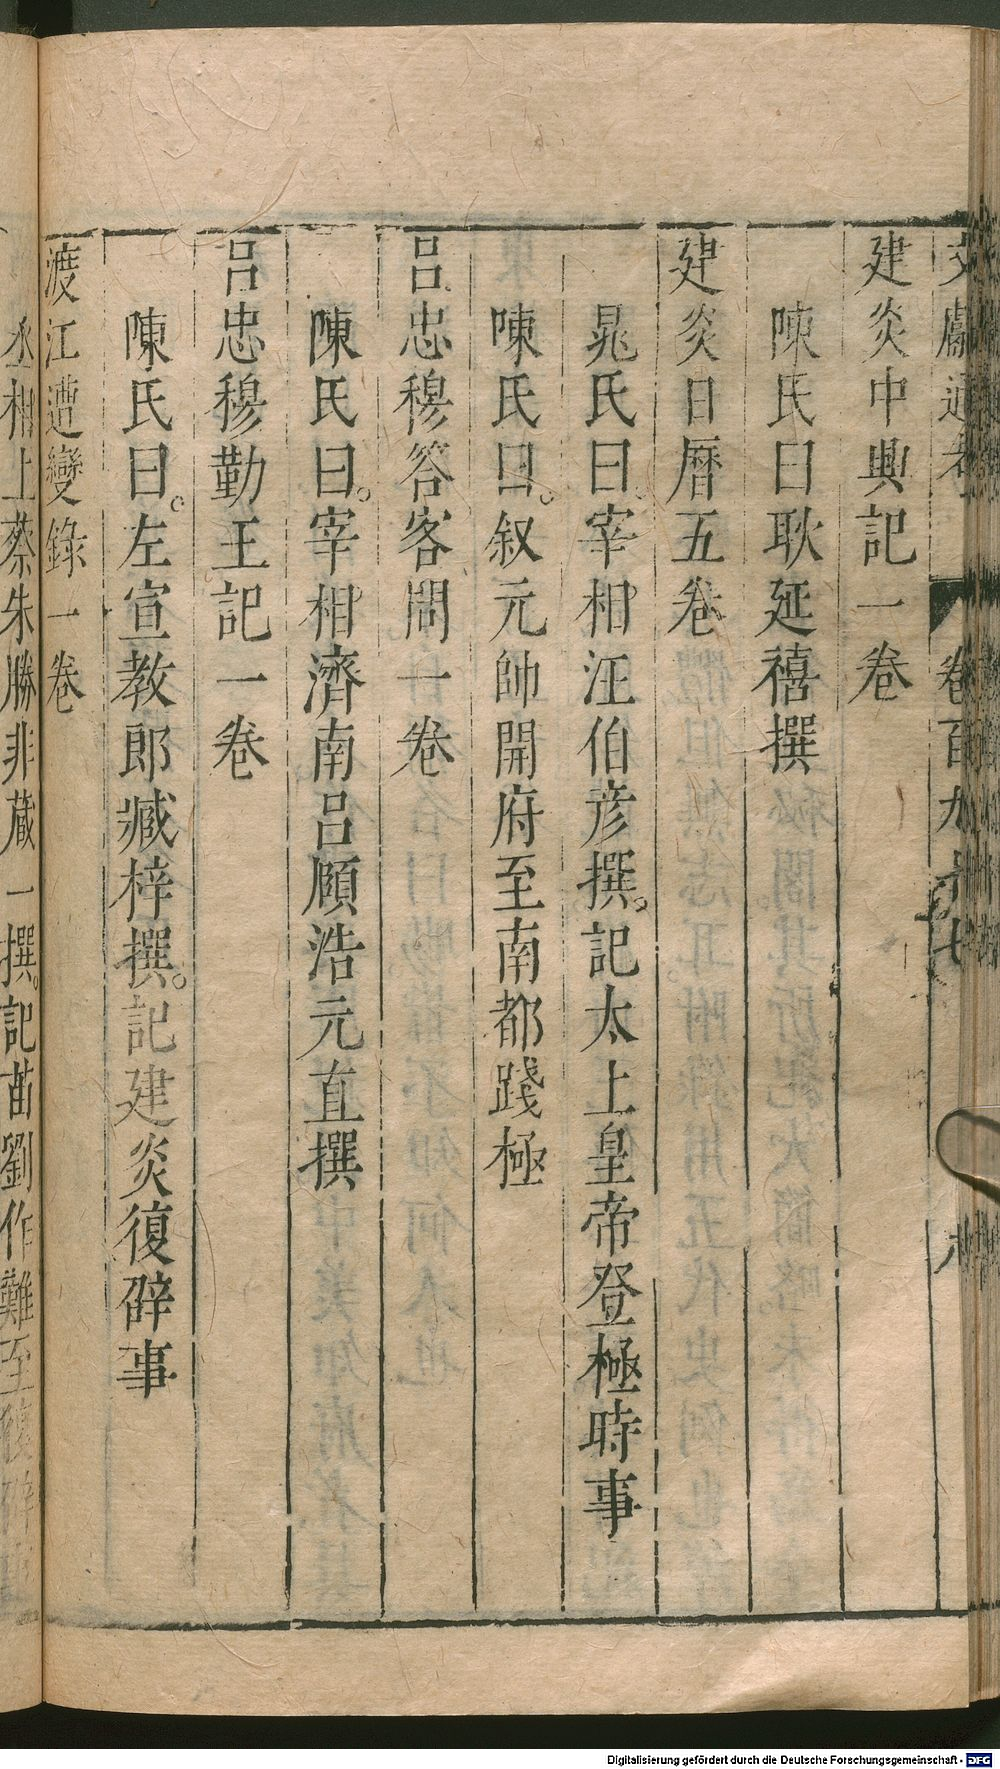 文獻通考 卷百九十七 八
建炎中興記一卷
陳氏曰耿延禧撰
建炎日曆五卷
晁氏曰宰相汪伯彦撰。記太上皇帝登極時事
陳氏曰。叙元帥開府至南都踐極
呂忠穆答客問一卷
陳氏曰。宰相濟南呂頤浩元直撰
呂忠穆勤王記一卷
陳氏曰。左宣教郎臧梓撰。記建炎復辟事
渡江遭變錄一卷
丞相上蔡朱勝非藏一撰。記苗劉作難至復辟
Digitalisierung gefördert durch die Deutsche Forschungsgemeinschaft - DFG